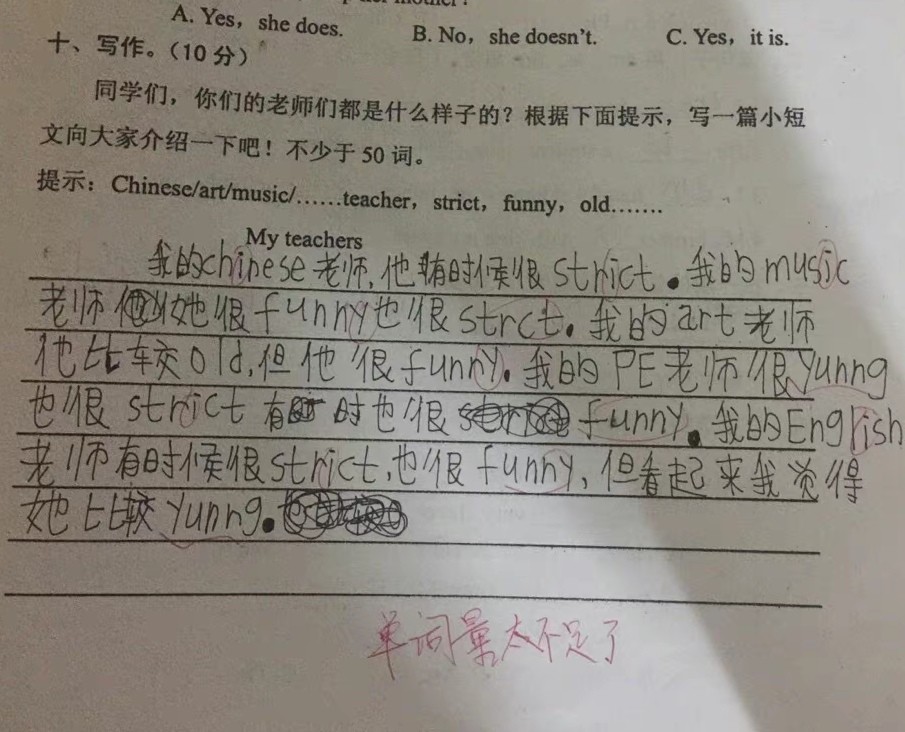 A. Yes，she does. B. No，she doesn't. C. Yes，it is.
十、写作。（10 分）
同学们，你们的老师们都是什么样子的？根据下面提示，写一篇小短
文向大家介绍一下吧！不少于 50 词。
提示：Chinese/art/music/……teacher，strict，funny，old…….
My teachers
我的chinese老师,他有时候很strict。我的music
老师她很funny也很strct。我的art老师
他比较old,但他很funny。我的PE老师很yunng
也很strict有时也很funny。我的English
老师有时候很strict,也很funny,但看起来我觉得
她比较yunng。
单词量太不足了